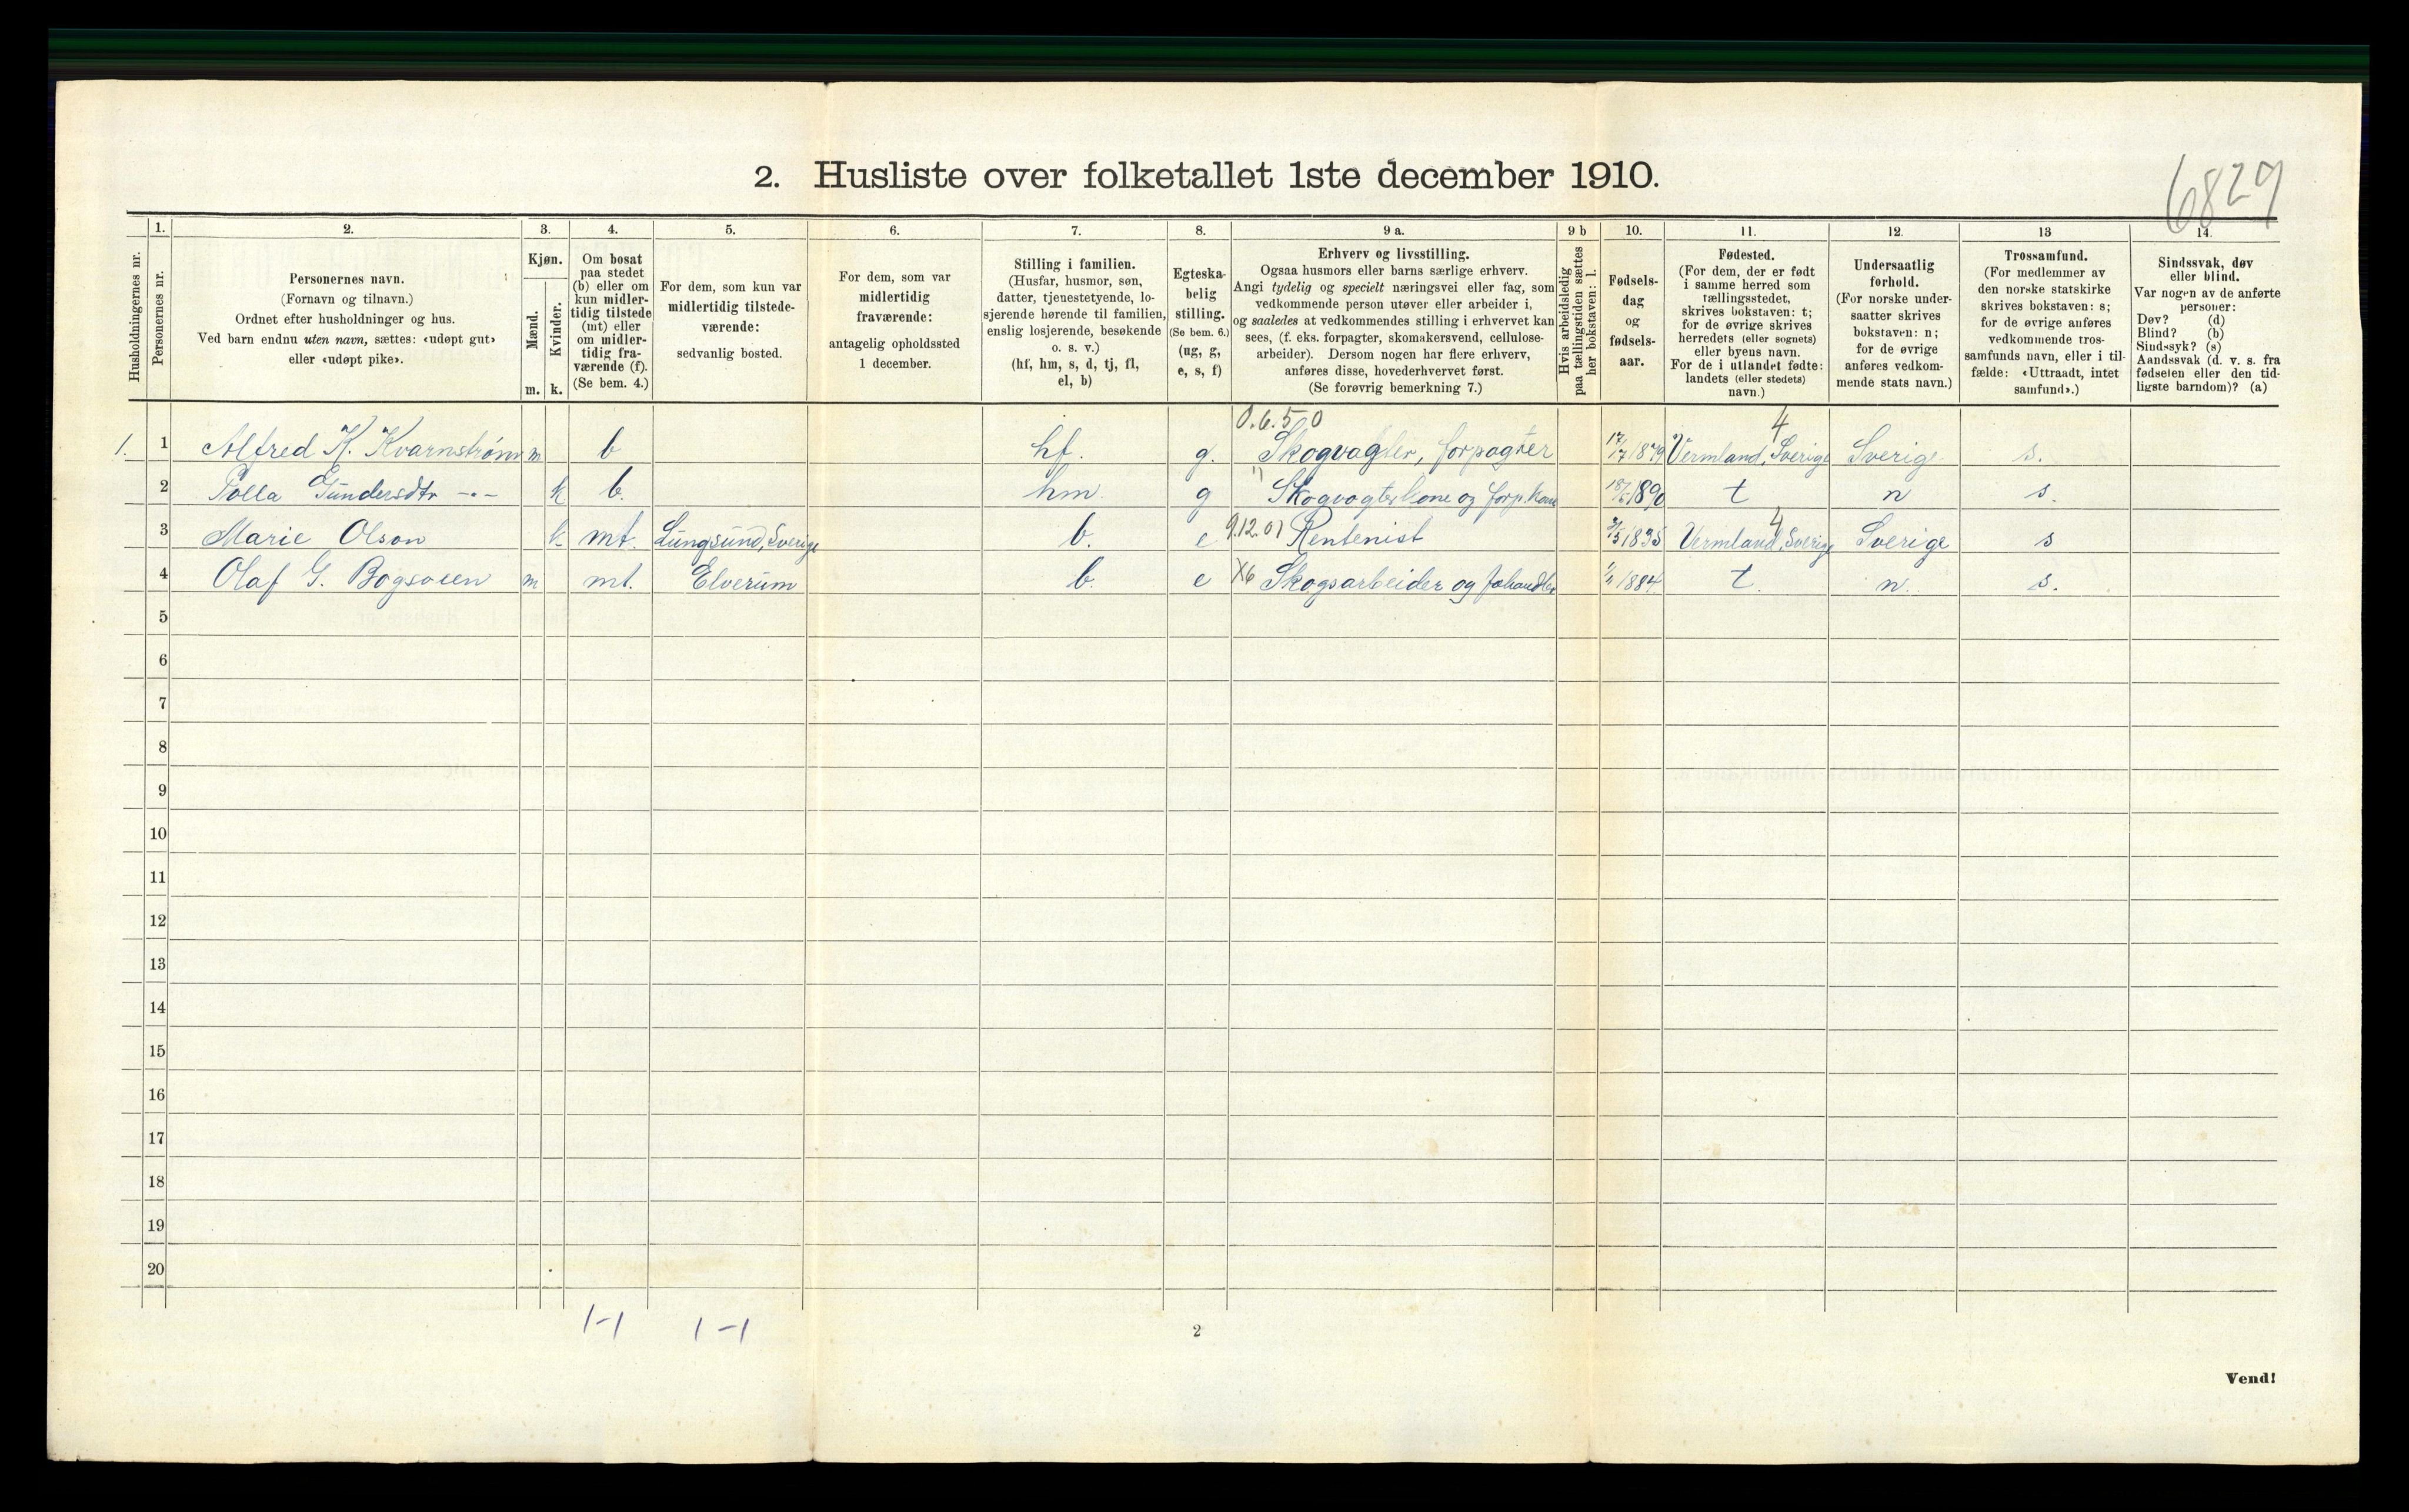 6829
2. Husliste over folketallet 1ste december 1910.
Husholdningernes nr.
1. Personernes nr.
2.
Personernes navn.
(Fornavn og tilnavn.)
Ordnet efter husholdninger og hus.
Ved barn endnu uten navn, sættes: «udøpt gut»
eller «udøpt pike».
3.
Kjøn.
Mænd. Kvinder.
m. k.
4.
Om bosat
paa stedet
(b) eller om
kun midler-
tidig tilstede
(mt) eller
om midler-
tidig fra-
værende (f).
(Se bem. 4.)
5.
For dem, som kun var
midlertidig tilstede-
værende:
sedvanlig bosted.
6.
For dem, som var
midlertidig
fraværende:
antagelig opholdssted
1 december.
7.
Stilling i familien.
(Husfar, husmor, søn,
datter, tjenestetyende, lo-
sjerende hørende til familien,
enslig losjerende, besøkende
o. s. v.)
(hf, hm, s, d, tj, fl,
el, b)
8.
Egteska-
belig
stilling.
(Se bem. 6.)
(ug, g,
e, s, f)
9 a.
Erhverv og livsstilling.
Ogsaa husmors eller barns særlige erhverv.
Angi tydelig og specielt næringsvei eller fag, som
vedkommende person utøver eller arbeider i,
og saaledes at vedkommendes stilling i erhvervet kan
sees, (f. eks. forpagter, skomakersvend, cellulose-
arbeider). Dersom nogen har flere erhverv,
anføres disse, hovederhvervet først.
(Se forøvrig bemerkning 7.)
9 b
Hvis arbeidsledig
paa tællingstiden sættes
her bokstaven: l.
10.
Fødsels-
dag
og
fødsels-
aar.
11.
Fødested.
(For dem, der er født
i samme herred som
tællingsstedet,
skrives bokstaven: t;
for de øvrige skrives
herredets (eller sognets)
eller byens navn.
For de i utlandet fødte:
landets (eller stedets)
navn.)
12.
Undersaatlig
forhold.
(For norske under-
saatter skrives
bokstaven: n;
for de øvrige
anføres vedkom-
mende stats navn.)
13
Trossamfund.
(For medlemmer av
den norske statskirke
skrives bokstaven: s;
for de øvrige anføres
vedkommende tros-
samfunds navn, eller i til-
fælde: «Uttraadt, intet
samfund».)
14.
Sindssvak, døv
eller blind.
Var nogen av de anførte
personer:
Døv? (d)
Blind? (b)
Sindssyk? (s)
Aandssvak (d. v. s. fra
fødselen eller den tid-
ligste barndom)? (a)
0.6.50 4
1. 1 Alfred K. Kvarnstrøm m b hf. g. Skogvagter, forpagter 17/7 1879 Vermland, Sverige Sverige s.
2 Gundersdtr -"- k b. hm. g " Skogvogterkone og forp. kone 1890 t n s.
4
3 Marie Olson k mt. Lungsund, Sverige b. e 9.12.01 Rentenist 1835 Vermland, Sverige Sverige s
4 Olaf G. m mt. Elverum b. e X6 Skogsarbeider og 1884 t. n. s.
5
6
7
8
9
10
11
12
13
14
15
16
17
18
19
20
1-1 1-1
2
Vend!